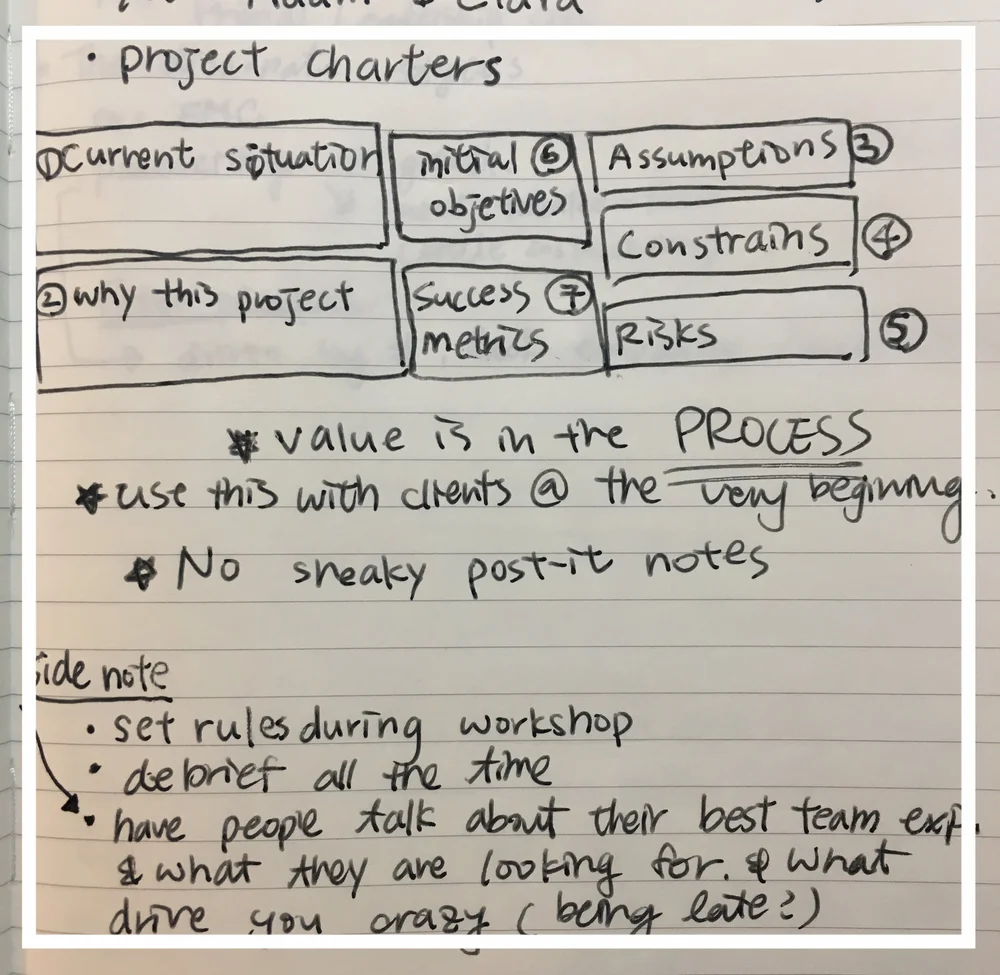 Adam & Clara
• project charters
① Current situation
initial ⑥
objetives
Assumptions ③
Constrains ④
② why this project
Success ⑦
metrics
Risks ⑤
* value is in the PROCESS
* use this with clients @ the very beginning.
* No sneaky post-it notes
side note
• set rules during workshop
• debrief all the time
• have people talk about their best team exp.
& what they are looking for. & what
drive you crazy (being late?)